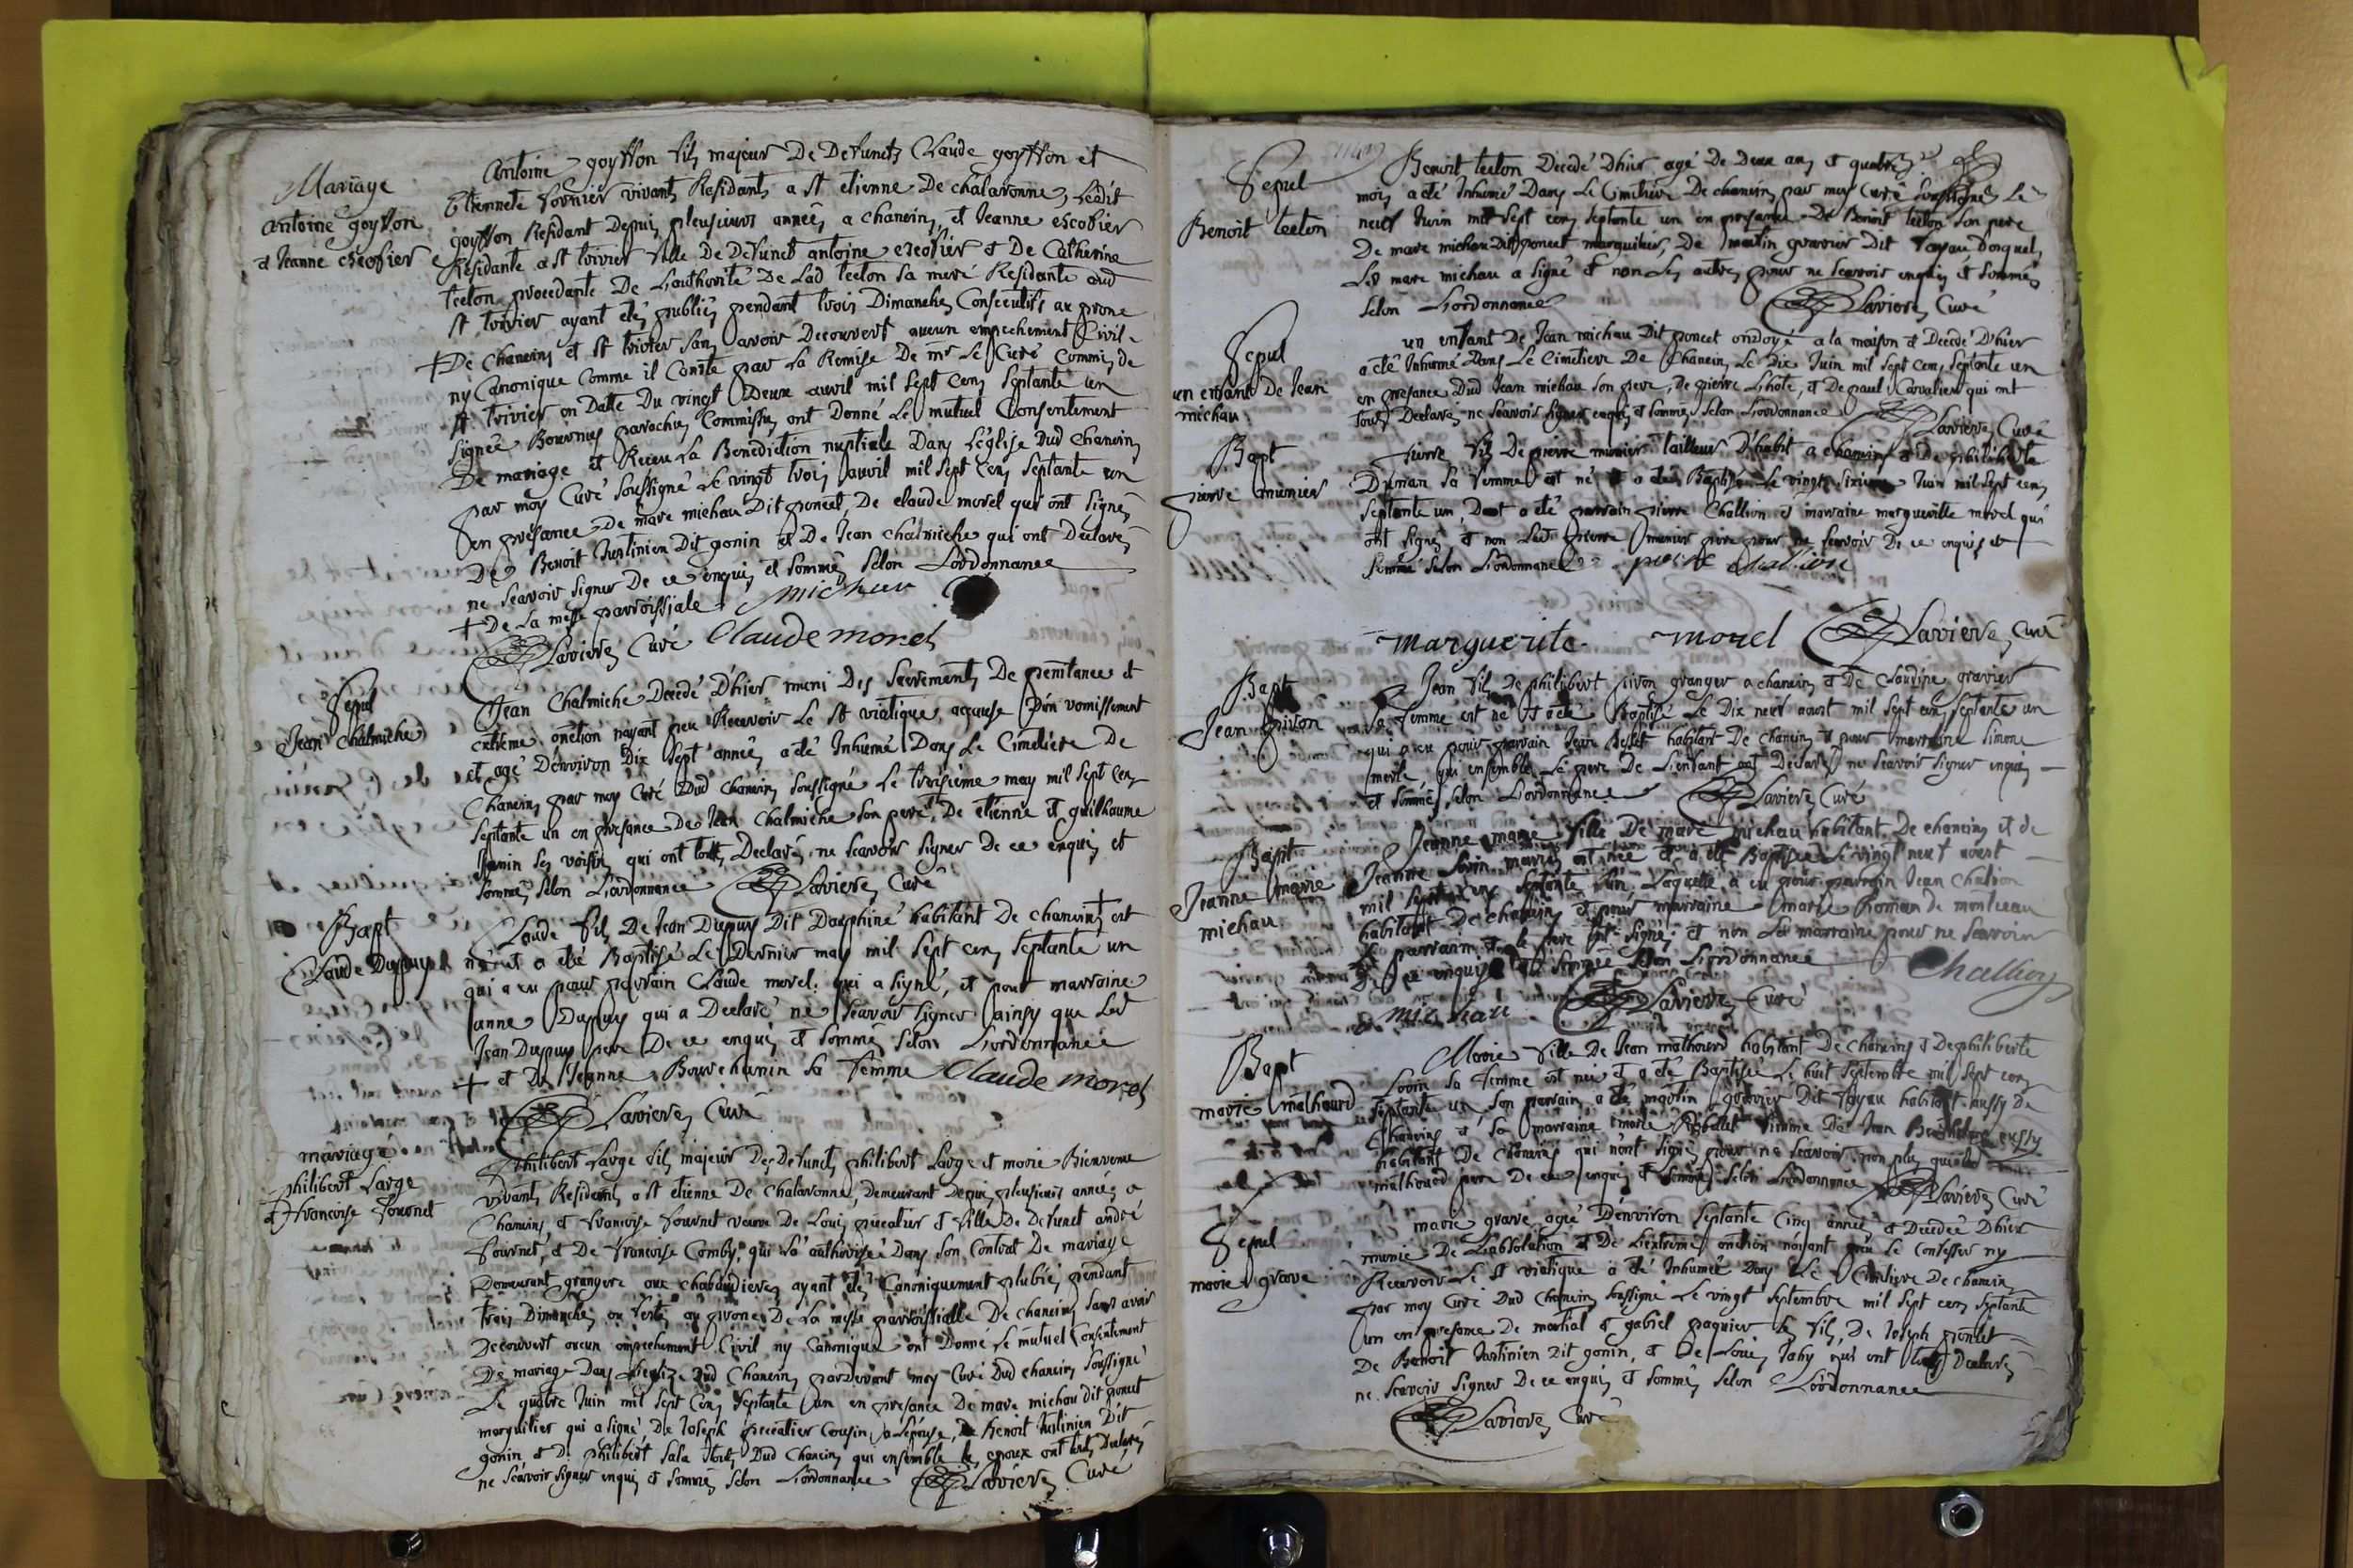 Mariage
antoine goyffon
et Jeanne escofier
Antoine goyffon fils majeur De Defuncts Claude goyffon et
Etiennete fornier vivants Residants a st etienne De chalaronne, Ledit
goyffon Residant Depuis plusieurs années a chanein, et Jeanne escofier
Residante a st trivier fille De Defunct antoine escofier et De Catherine
teeton procedante De Lauthorité De Lad teeton sa mere Residante aud
st trivier ayant étés publiés pendant trois Dimanches Consecutifs au prone
+ De chanein et st trivier sans avoir Decouvert aucun empechement Civil
ny Canonique Comme il Conste par La Remise De mr Le Curé Commis de
st trivier en Datte Du vingt Deux avril mil sept Cens septante un
signée Bournus parochus Commissus ont Donné Le mutuel Consentement
De mariage et Receu La Benediction nuptiale Dans Léglise Dud Chanein
par moy Curé soussigné Le vingt trois avril mil sept Cens septante un
en presance De marc michau Dit poncet, De claude morel qui ont signés
De Benoit Justinien Dit gonin et De Jean chalmiche qui ont Declarés
ne sçavoir signer De ce enquis et sommés selon Lordonnance
+ De La messe parroissiale michau
Laviere Curé Claude morel
Sepul
Jean Chalmiche
Jean Chalmiche Decedé D'hier muni Des sacrements De penitance et
extreme onction nayant peu Recevoir Le st viatique acause D'un vomissement
et agé D'environ Dix sept années a été Inhumé Dans Le Cimetiere De
Chanein par moy Curé Dud Chanein soussigné Le troisieme may mil sept cens
septante un en presance De Jean Chalmiche son pere, De etienne et guilhaume
Janin ses voisins qui ont touts Declarés ne scavoir signer de ce enquis et
sommés selon Lordonnance Laviere Curé
Bapt
Claude Dupuy
Claude fils De Jean Dupuy Dit Dauphiné habitant De chanein + est
né et a été Baptisé Le Dernier may mil sept cens septante un
qui a eu pour parrain Claude morel qui a signé, et pour marraine
Janne Dupuy qui a Declaré ne scavoir signer ainsy que Led
Jean Dupuy pere De ce enquis et sommés selon Lordonnance
+ et De Jeanne Bourchanin sa femme Claude morel
Laviere Curé
mariage
philibert Large
et francoise fournet
Philibert Large fils majeur Des Defuncts philibert Large et marie Bienvenu
vivants Residants a st etienne De Chalaronne, Demeurant Depuis plusieurs années a
Chanein et francoise fournet veuve De Louis Precatier et fille De Defunct andré
fournet, et De francoise Comby, qui La authorisée Dans son Contrat De mariage
Demeurant grangere aux chabaudieres ayant étés Canoniquement publiés pendant
trois Dimanches ou festes au prone De La messe parroissialle De chanein sans avoir
Decouvert aucun empechement Civil ny Canonique ont Donné Le mutuel Consentement
De mariage Dans Leglize Dud Chanein pardevant moy Curé Dud chanein soussigné
Le quatre Juin mil sept Cens septante un en presance De marc michau dit poncet
marguilier qui a signé, De Joseph precatier Cousin a Lépouse, De Benoit Justinien Dit
gonin et De philibert sala touts Dud Chanein qui ensemble les epoux ont touts Declarés
ne sçavoir signer enquis et sommés selon Lordonnance Laviere Curé
Sepul
Benoit teeton
Benoit teeton Decedé Dhier agé De Deux ans et quatre
mois a été Inhumé Dans Le Cimetiere De chanein par moy Curé soussigné Le
neuf Juin mil sept cens septante un en presance De Benoit teeton son pere
De marc michau Dit poncet marguilier, De martin gravier Dit fayau Dorquels
Led marc michau a signé et non Les autres pour ne scavoir enquis et sommés
selon Lordonnance Laviere Curé
Sepul
un enfant De Jean
michau
un enfant De Jean michau Dit poncet ondoyé a la maison et Decedé D'hier
a été Inhumé Dans Le Cimetiere De Chanein Le Dix Juin mil sept cens septante un
en presance Dud Jean michau son pere, De pierre Lhote, et De paul Cavalier qui ont
touts Declarés ne scavoir signer enquis et sommés selon Lordonnance Laviere Curé
Bapt
pierre munier
pierre fils De pierre munier tailleur D'habit a chanein et De philiberte
Duman sa femme est né et a été Baptisé Le vingt sixieme Juin mil sept cens
septante un, Dont a été parrain pierre Challion et marraine margueritte morel qui
ont signés et non Ledt pierre munier pere pour ne scavoir De ce enquis et
sommé selon Lordonnance pierre challion
marguerite morel Laviere Curé
Bapt
Jean pivon
Jean fils De philibert pivon granger a chanein et De Claudine gravier
sa femme est né et a été Baptisé Le Dix neuf aoust mil sept cens septante un
qui a eu pour parrain Jean Besset habitant De chanein et pour marraine Simone
morle, qui ensemble Le pere De Lenfant ont Declarés ne scavoir signer enquis
et sommés selon Lordonnance Laviere Curé
Bapt
Jeanne marie
michau
Jeanne marie fille De marc michau habitant De chanein et de
Jeanne sorin mariés est née et a été Baptisée Le vingt neuf aoust
mil sept cens septante un, Laquelle a eu pour parrain Jean Chalion
habitant De chanein et pour marraine marie Roman de montceau
Le parrain et le pere ont signés et non La marraine pour ne scavoir
De ce enquise et sommée selon Lordonnance Challion
michau Laviere Curé
Bapt
marie malhourd
Marie fille De Jean malhourd habitant De Chanein et De philiberte
Sorin sa femme est née et a été Baptisée Le huit septembre mil sept cens
septante un son parrain a été martin gravier Dit fayau habitant aussy De
Chanein et sa marraine marie Rebellet femme De Jean aussy
habitant De Chanein qui n'ont signés pour ne scavoir non plus que led
malhourd pere De ce enquis et sommés selon Lordonnance Laviere Curé
Sepul
marie grave
marie grave agée D'environ septante Cinq années et Decedée Dhier
munie De L'absolution et De L'extreme onction n'ayant peu Se confesser ny
Recevoir Le st viatique a été Inhumée Dans Le Cimetiere De chanein
par moy Curé Dud Chanein soussigné Le vingt septembre mil sept cens septante
un en presance De martial et gabriel paquier ses fils, De Joseph poncet
De Benoit Justinien Dit gonin, et De Louis Jaby qui ont touts Declarés
ne scavoir signer De ce enquis et sommés selon Lordonnance
Laviere Curé